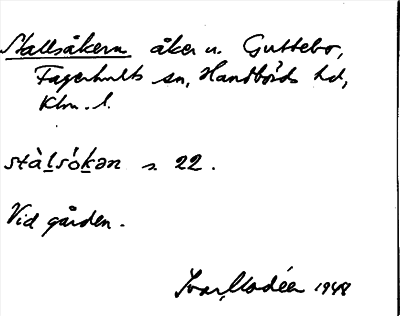 Stallsåkern åker u. Guttebo,
Fagerhults sn, Handbörds hd,
Klm. l.
stàlsó̀kən s. 22.
Vid gården.
Ivar Modéer 1948